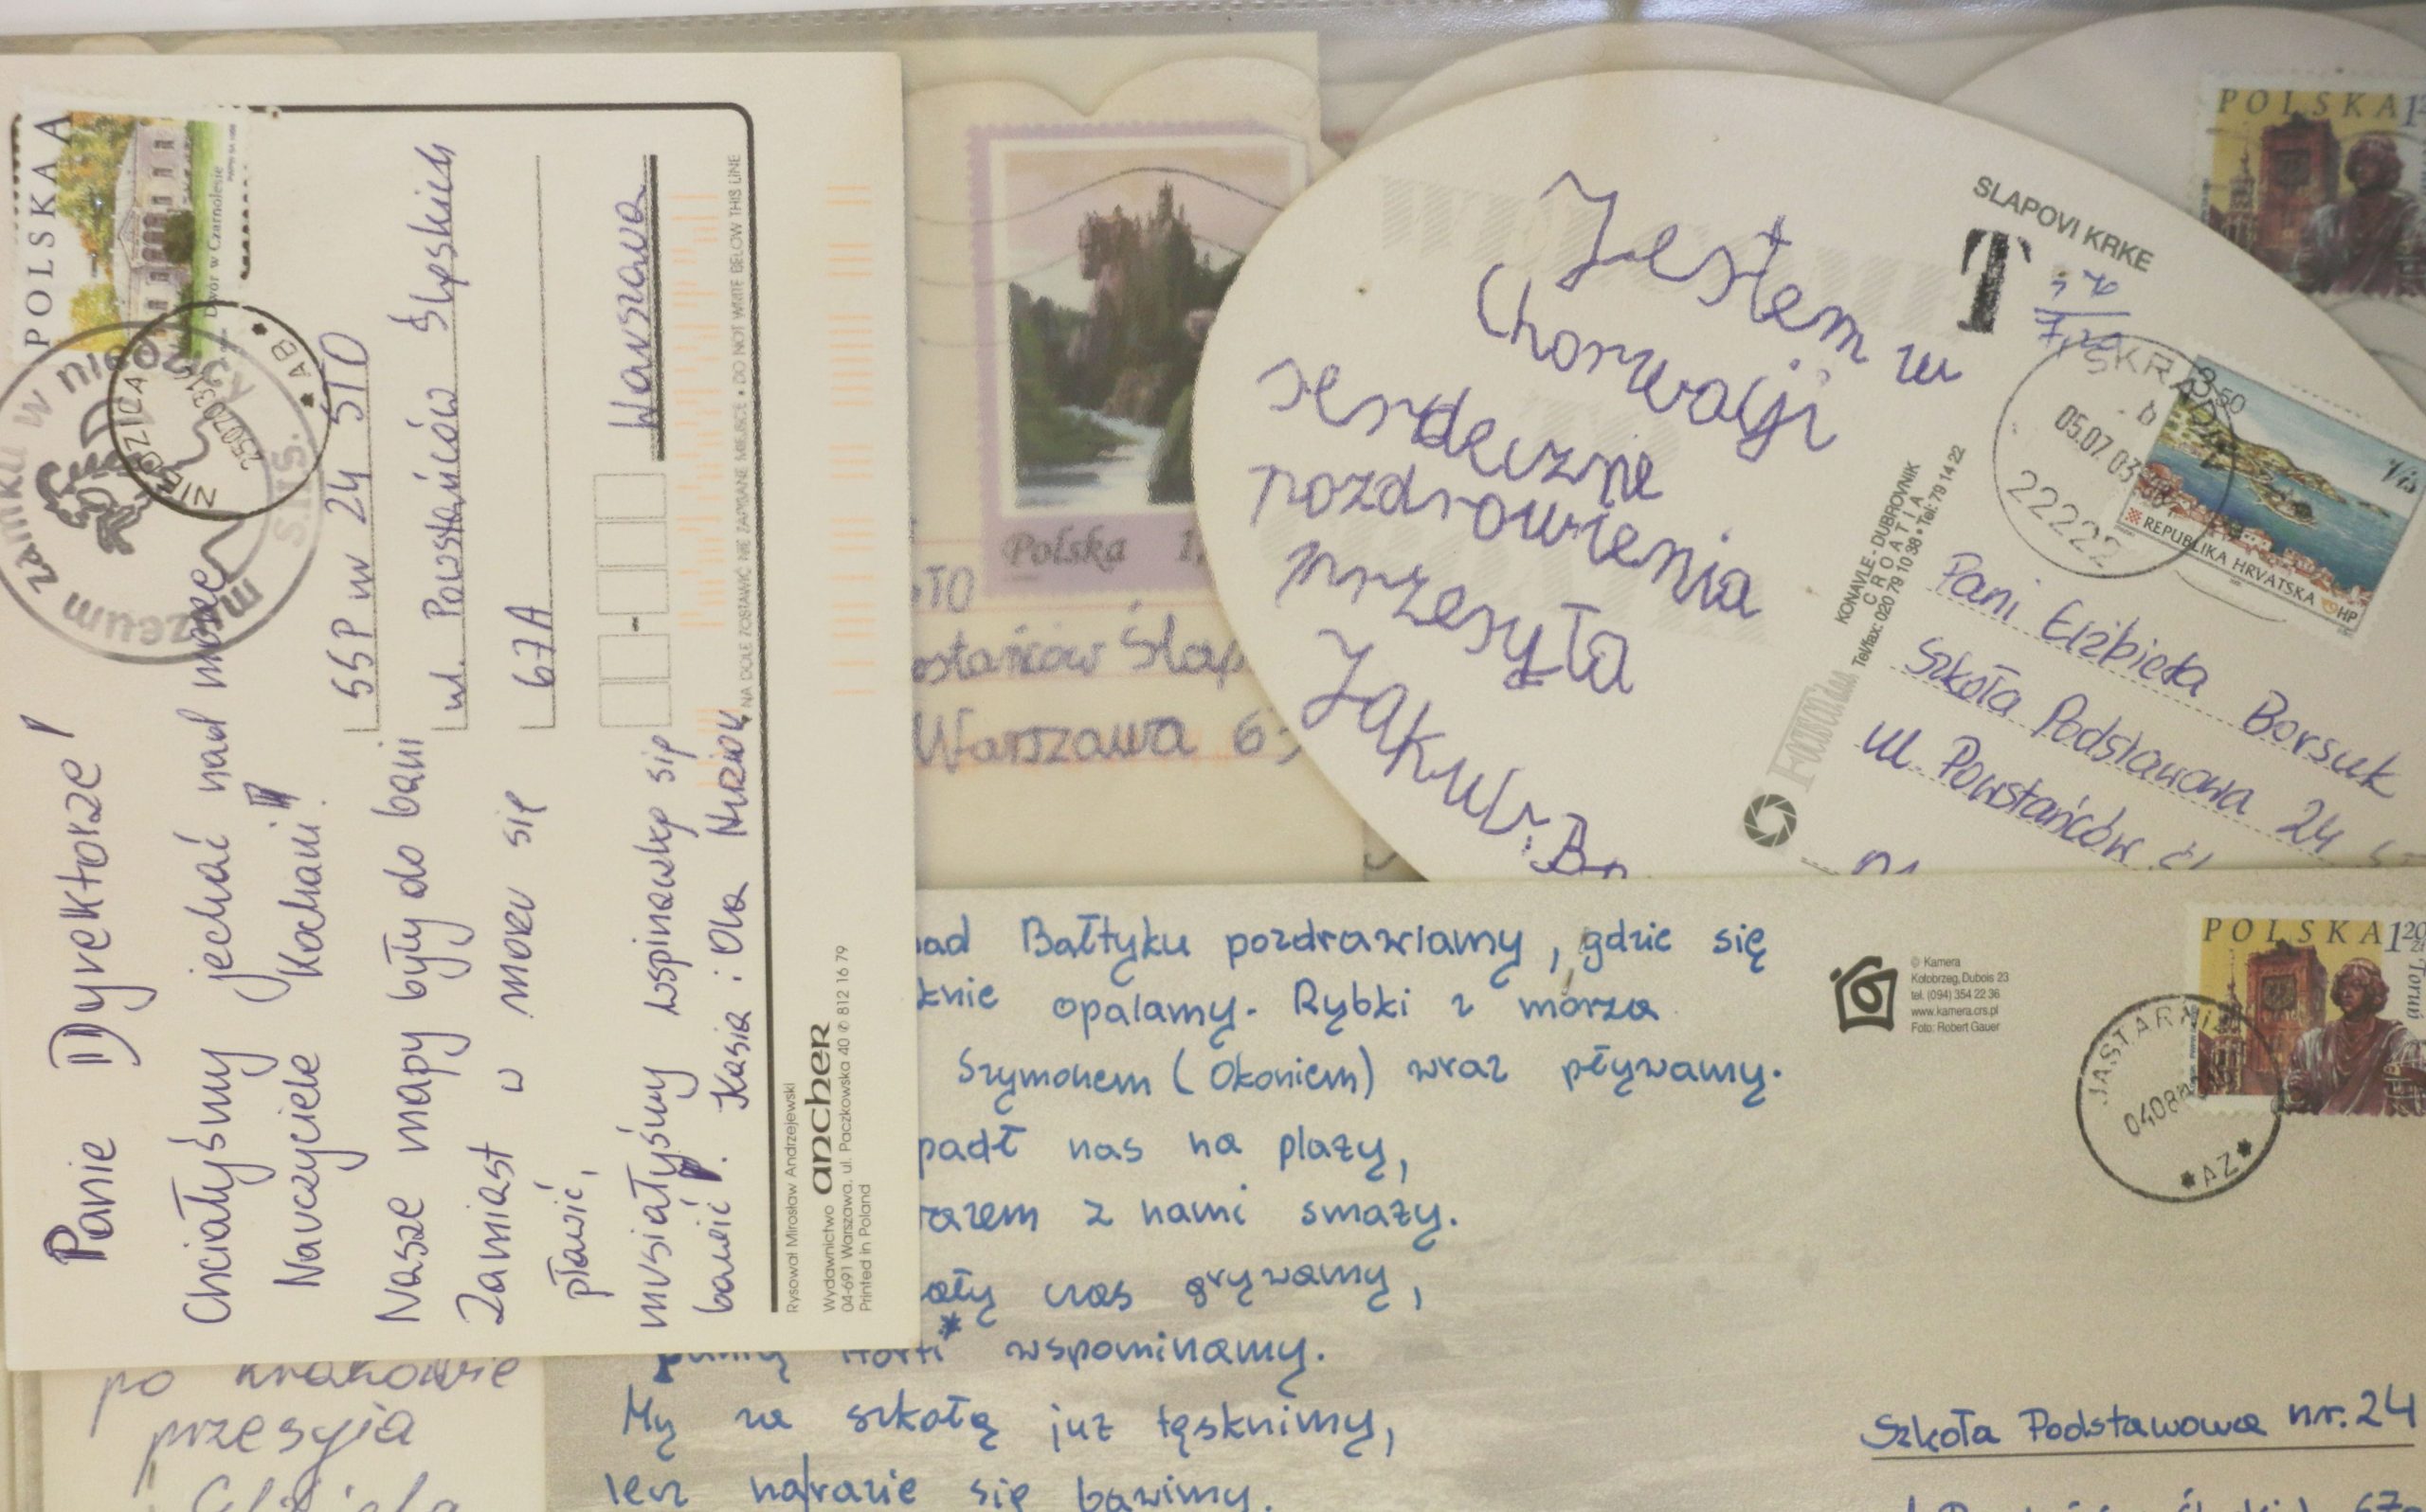 Panie Dyrektorze!
Chciałyśmy jechać nad morze
Nauczyciele Kochani!
Nasze mapy były do bani
Zamiast w morzu się
pławić,
musiałyśmy wspinawkę się
bawić. Kasia i Ola
POLSKA A
Dwór w Czarnolesie
muzeum zamku w niedzicy
S.H.S.
NIEDZICA
AB
SSP nr 24 STO
ul. Powstańców Śląskich
67A
Warszawa
NA DOLE ZOSTAWIĆ NIE ZAPISANE MIEJSCE • DO NOT WRITE BELOW THIS LINE
Rysował Mirosław Andrzejewski
Wydawnictwo ancher
04-691 Warszawa, ul. Paczkowska 40 ✆ 812 16 79
Printed in Poland
Polska
STO
Warszawa
Jestem w
Chorwacji
serdeczne
pozdrowienia
przesyła
Jakub
SLAPOVI KRKE
T
05.07.03
22222
3,50
Vis
REPUBLIKA HRVATSKA HP
KONAVLE - DUBROVNIK
CROATIA
Tel/fax: 020 79 10 38 • Tel: 79 14 22
Pani Elżbieta Borsuk
Szkoła Podstawowa 24
ul. Powstańców
POLSKA
Bałtyku pozdrawiamy, gdzie się
opalamy. Rybki z morza
Szymonem (Okoniem) wraz pływamy.
nas na plaży,
z nami smaży.
czas grywamy,
wspominamy.
My za szkołą już tęsknimy,
lecz narazie się bawimy.
© Kamera
Kołobrzeg, Dubois 23
tel. (094) 354 22 36
www.kamera.crs.pl
Foto: Robert Gauer
POLSKA 120 zł
Toruń
JASTARNIA
AZ
Szkoła Podstawowa nr. 24
po Krakowie
przesyła